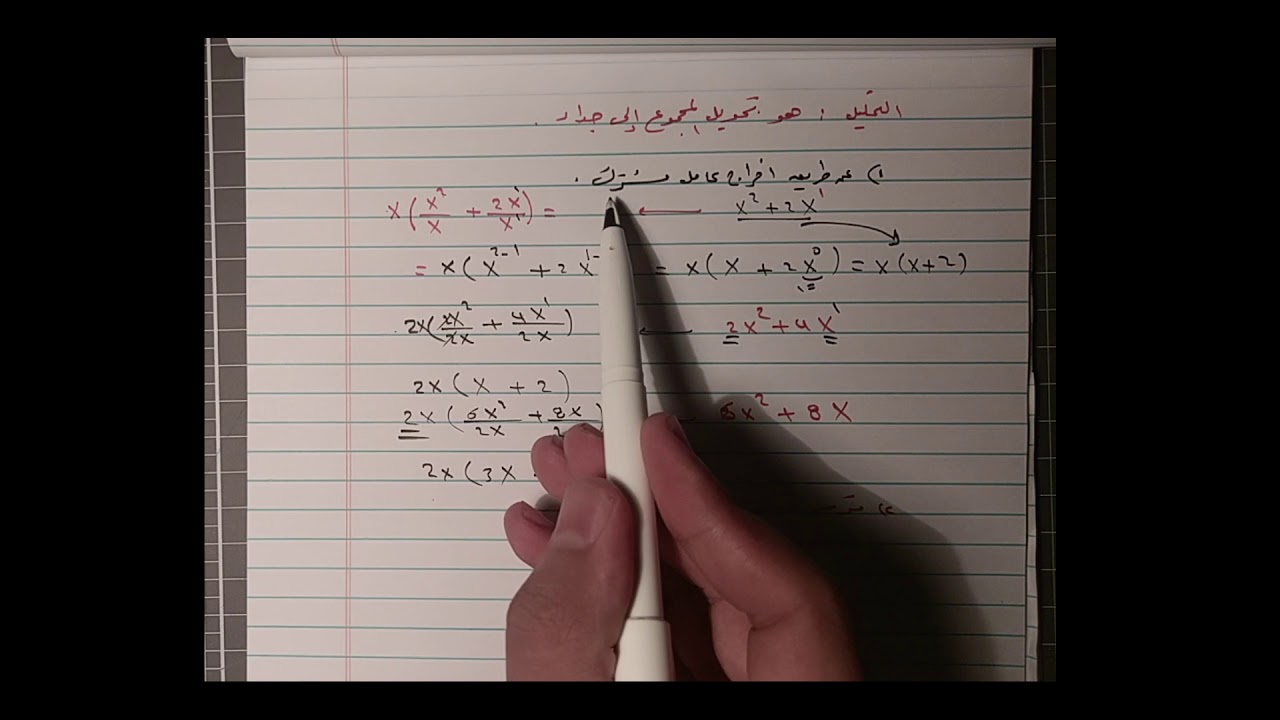 التحليل : هو تحويل المجموع إلى جداء .
1) عن طريق اخراج عامل مشترك .
x² + 2x¹ ← = x(x²/x + 2x¹/x¹)
= x(x²⁻¹ + 2x¹⁻ = x(x + 2x⁰) = x(x+2)
1=
2x² + 4x¹ ← 2x(2x²/2x + 4x¹/2x)
2x(x + 2)
6x² + 8x 2x(6x²/2x + 8x/2)
2x(3x
2)